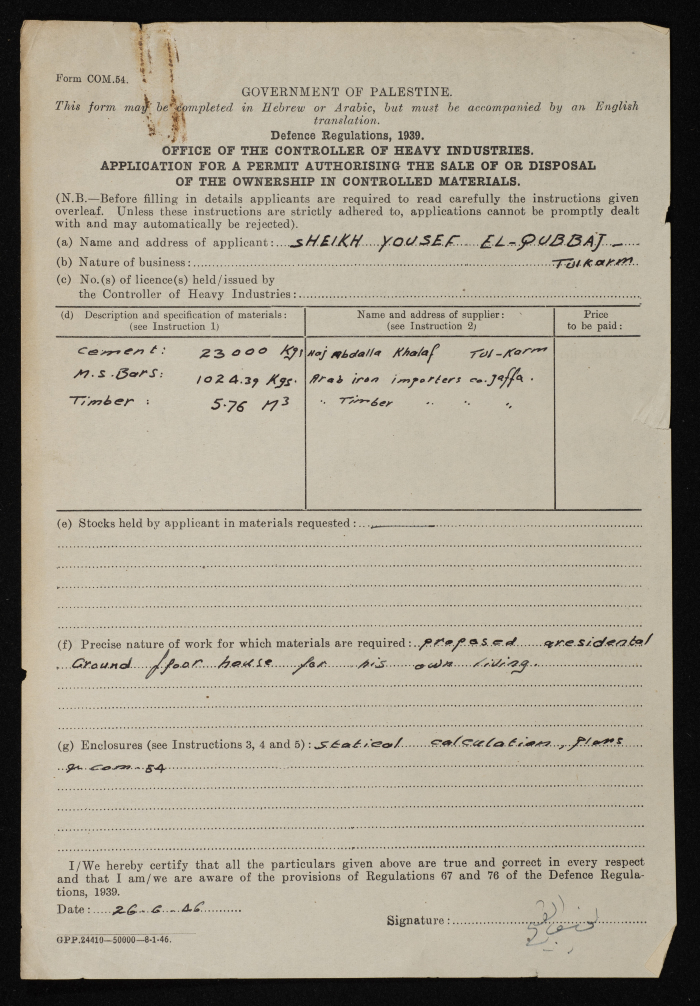 Form COM.54.
GOVERNMENT OF PALESTINE.
This form may be completed in Hebrew or Arabic, but must be accompanied by an English
translation.
Defence Regulations, 1939.
OFFICE OF THE CONTROLLER OF HEAVY INDUSTRIES.
APPLICATION FOR A PERMIT AUTHORISING THE SALE OF OR DISPOSAL
OF THE OWNERSHIP IN CONTROLLED MATERIALS.
(N.B.—Before filling in details applicants are required to read carefully the instructions given
overleaf. Unless these instructions are strictly adhered to, applications cannot be promptly dealt
with and may automatically be rejected).
(a) Name and address of applicant: SHEIKH YOUSEF EL-QUBBAJ —
(b) Nature of business: Tulkarm
(c) No.(s) of licence(s) held/issued by
the Controller of Heavy Industries:
(d) Description and specification of materials: Name and address of supplier: Price
(see Instruction 1) (see Instruction 2) to be paid:
Cement: 23000 Kgs Haj Abdalla Khalaf Tul-Karm
M.S. Bars: 1024.39 Kgs. Arab iron importers co. Jaffa.
Timber : 5.76 M3 " Timber " " "
(e) Stocks held by applicant in materials requested: —
(f) Precise nature of work for which materials are required: proposed a residental
Ground floor house for his own living.
(g) Enclosures (see Instructions 3, 4 and 5): Statical calculation, plans
& com. 54
I/We hereby certify that all the particulars given above are true and correct in every respect
and that I am/we are aware of the provisions of Regulations 67 and 76 of the Defence Regula-
tions, 1939.
Date: 26-6-46
Signature:
GPP.24410—50000—6-1-46.